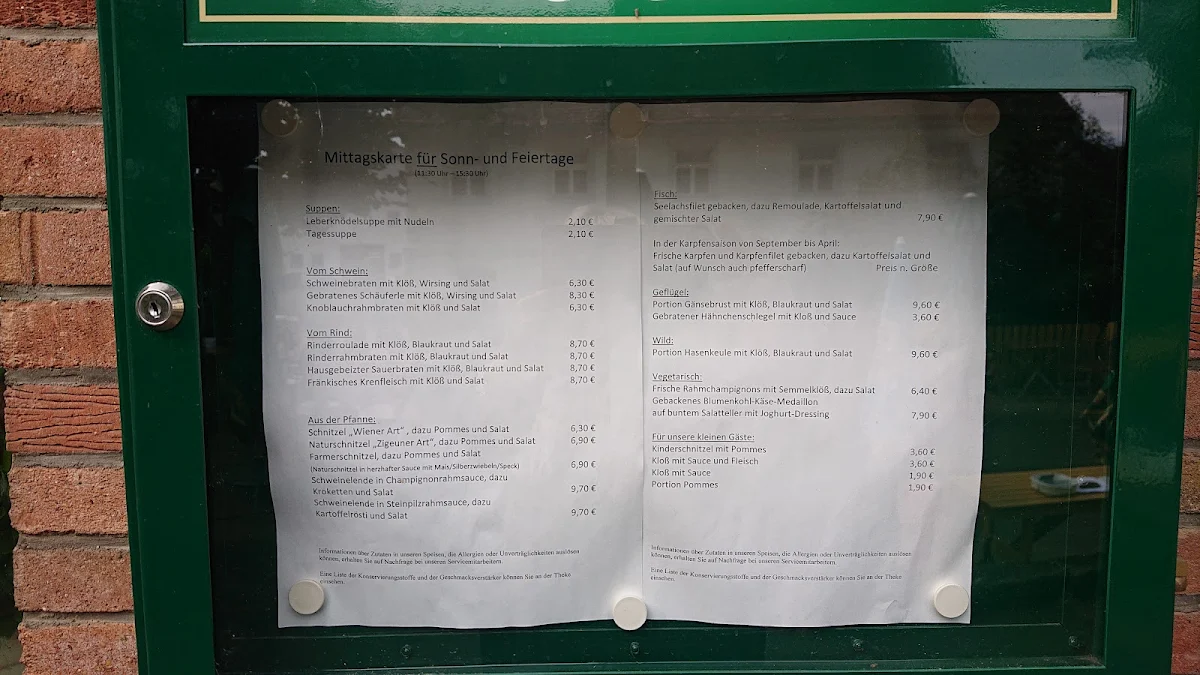 Mittagskarte für Sonn- und Feiertage
(11:30 Uhr – 15:30 Uhr)
Suppen:
Leberknödelsuppe mit Nudeln 2,10 €
Tagessuppe 2,10 €
Vom Schwein:
Schweinebraten mit Klöß, Wirsing und Salat 6,30 €
Gebratenes Schäuferle mit Klöß, Wirsing und Salat 8,30 €
Knoblauchrahmbraten mit Klöß und Salat 6,30 €
Vom Rind:
Rinderroulade mit Klöß, Blaukraut und Salat 8,70 €
Rinderrahmbraten mit Klöß, Blaukraut und Salat 8,70 €
Hausgebeizter Sauerbraten mit Klöß, Blaukraut und Salat 8,70 €
Fränkisches Krenfleisch mit Klöß und Salat 8,70 €
Aus der Pfanne:
Schnitzel „Wiener Art" , dazu Pommes und Salat 6,30 €
Naturschnitzel „Zigeuner Art", dazu Pommes und Salat 6,90 €
Farmerschnitzel, dazu Pommes und Salat
(Naturschnitzel in herzhafter Sauce mit Mais/Silberzwiebeln/Speck) 6,90 €
Schweinelende in Champignonrahmsauce, dazu
Kroketten und Salat 9,70 €
Schweinelende in Steinpilzrahmsauce, dazu
Kartoffelrösti und Salat 9,70 €
Informationen über Zutaten in unseren Speisen, die Allergien oder Unverträglichkeiten auslösen
können, erhalten Sie auf Nachfrage bei unseren Servicemitarbeitern.
Eine Liste der Konservierungsstoffe und der Geschmacksverstärker können Sie an der Theke
einsehen.
Fisch:
Seelachsfilet gebacken, dazu Remoulade, Kartoffelsalat und
gemischter Salat 7,90 €
In der Karpfensaison von September bis April:
Frische Karpfen und Karpfenfilet gebacken, dazu Kartoffelsalat und
Salat (auf Wunsch auch pfefferscharf) Preis n. Größe
Geflügel:
Portion Gänsebrust mit Klöß, Blaukraut und Salat 9,60 €
Gebratener Hähnchenschlegel mit Kloß und Sauce 3,60 €
Wild:
Portion Hasenkeule mit Klöß, Blaukraut und Salat 9,60 €
Vegetarisch:
Frische Rahmchampignons mit Semmelklöß, dazu Salat 6,40 €
Gebackenes Blumenkohl-Käse-Medaillon
auf buntem Salatteller mit Joghurt-Dressing 7,90 €
Für unsere kleinen Gäste:
Kinderschnitzel mit Pommes 3,60 €
Kloß mit Sauce und Fleisch 3,60 €
Kloß mit Sauce 1,90 €
Portion Pommes 1,90 €
Informationen über Zutaten in unseren Speisen, die Allergien oder Unverträglichkeiten auslösen
können, erhalten Sie auf Nachfrage bei unseren Servicemitarbeitern.
Eine Liste der Konservierungsstoffe und der Geschmacksverstärker können Sie an der Theke
einsehen.